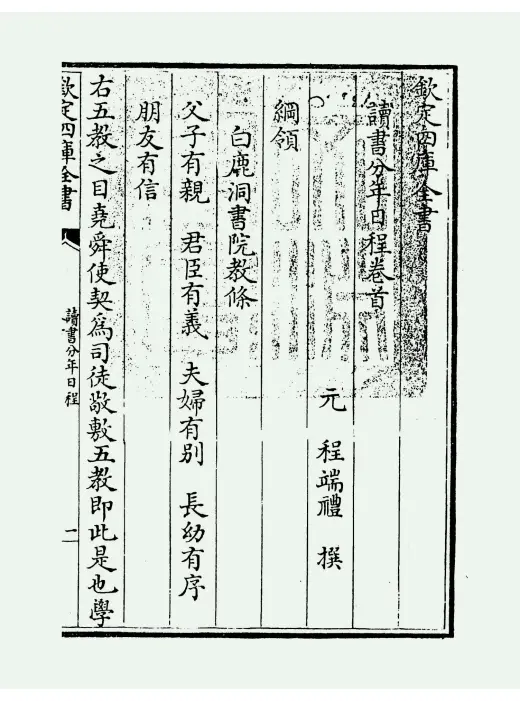 欽定四庫全書
讀書分年日程卷首
元 程端禮 撰
綱領
白鹿洞書院教條
父子有親 君臣有義 夫婦有别 長幼有序
朋友有信
右五教之目堯舜使契為司徒敬敷五教即此是也學
欽定四庫全書
讀書分年日程